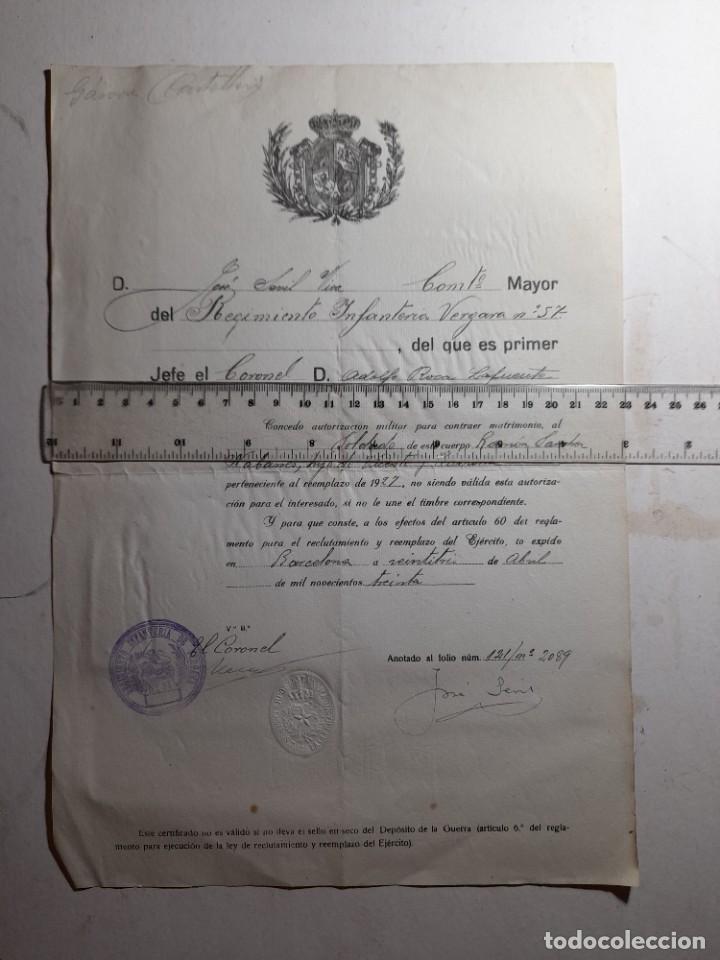 D. José Comte Mayor
del Regimiento Infanteria Vergara nº 57
, del que es primer
Jefe el Coronel D. Adolfo Roca Lafuente
1 2 3 4 5 6 7 8 9 10 11 12 13 14 15 16 17 18 19 20 21 22 23 24 25 26
Concedo autorización militar para contraer matrimonio, al
Soldado de este cuerpo Ramón
hijo de Vicente y
perteneciente al reemplazo de 1927, no siendo válida esta autoriza-
ción para el interesado, si no le une el timbre correspondiente.
Y para que conste, a los efectos del artículo 60 del regla-
mento para el reclutamiento y reemplazo del Ejército, lo expido
en Barcelona a veintitrés de Abril
de mil novecientos treinta
V.º B.º
El Coronel
Anotado al folio núm. 121/nº 2089
José
Este certificado no es válido si no lleva el sello en seco del Depósito de la Guerra (artículo 6.º del regla-
mento para ejecución de la ley de reclutamiento y reemplazo del Ejército).
todocoleccion
todocoleccion.net